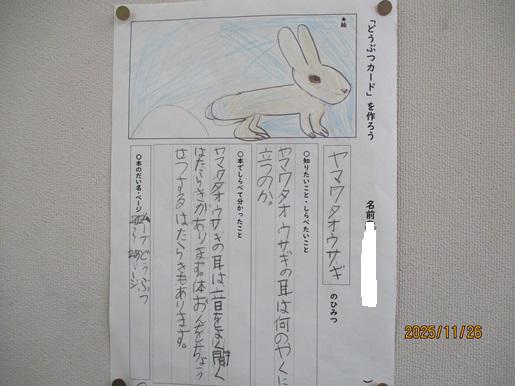 「どうぶつカード」を作ろう
名前
★絵
ヤマワタオウサギ
のひみつ
○知りたいこと・しらべたいこと
ヤマワタオウサギの耳は何のやくに
立つのか。
○本でしらべて分かったこと
ヤマワタオウサギの耳は音をよく聞く
はたらきがあります。体おんをちょう
せつするはたらきもあります。
○本のだい名・ページ
ムーブどうぶつ
ページ
2025/11/26